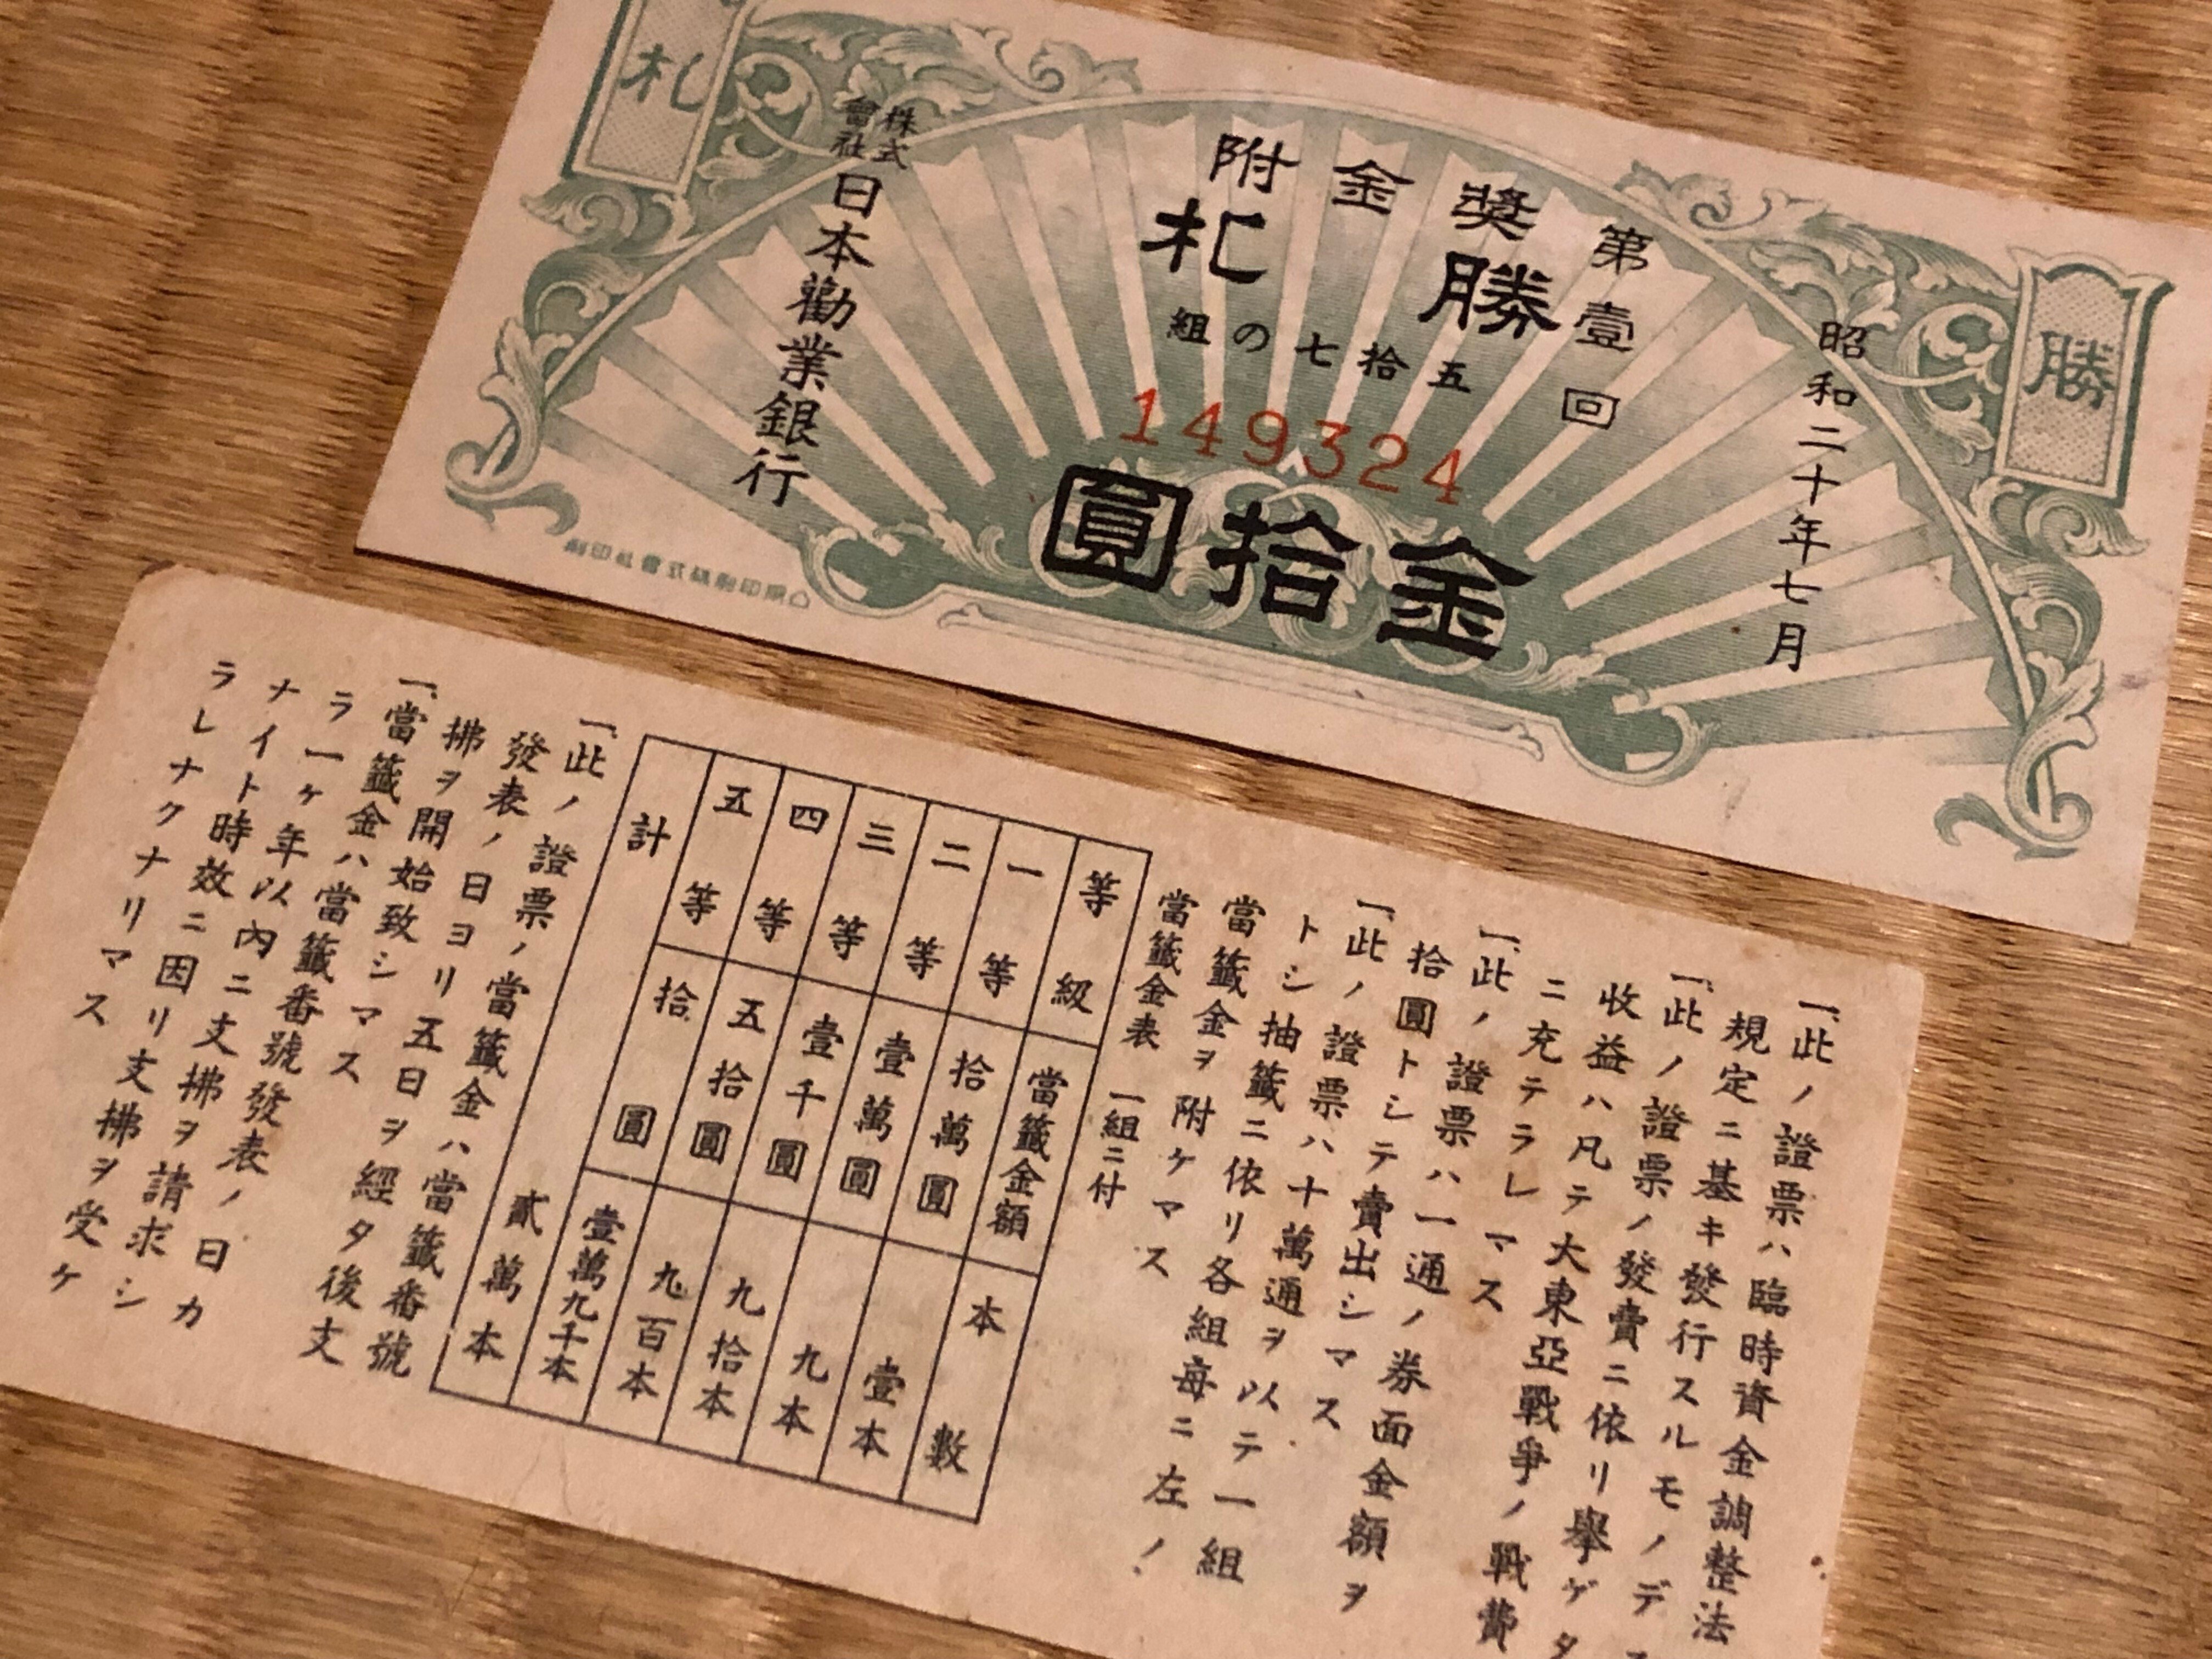 勝札
昭和二十年七月
第壹回
獎金附
勝札
五拾七の組
149324
金拾圓
株式會社日本勸業銀行
一、此ノ證票ハ臨時資金調整法
規定ニ基キ發行スルモノデ
一、此ノ證票ノ發賣ニ依リ擧ゲタ
收益ハ凡テ大東亞戰爭ノ戰費
ニ充テラレマス
一、此ノ證票ハ一通ノ券面金額ヲ
拾圓トシテ賣出シマス
一、此ノ證票ハ十萬通ヲ以テ一組
トシ抽籤ニ依リ各組毎ニ左ノ
當籤金ヲ附ケマス
當籤金表 一組ニ付
等級 當籤金額 本數
一等 拾萬圓 壹本
二等 壹萬圓 九本
三等 壹千圓 九拾本
四等 五拾圓 九百本
五等 拾圓 壹萬九千本
計 貳萬本
一、此ノ證票ノ當籤金ハ當籤番號
發表ノ日ヨリ五日ヲ經タ後支
拂ヲ開始致シマス
一、當籤金ハ當籤番號發表ノ日カ
ラ一ヶ年以內ニ支拂ヲ請求シ
ナイト時效ニ因リ支拂ヲ受ケ
ラレナクナリマス